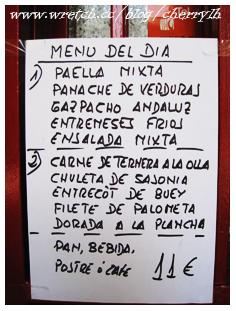 www.wretch.cc/blog/cherrylh
MENU DEL DIA
1) PAELLA MIXTA
PANACHE DE VERDURAS
GAZPACHO ANDALUZ
ENTREMESES FRIOS
ENSALADA MIXTA
2) CARNE DE TERNERA A LA OLLA
CHULETA DE SAJONIA
ENTRECÒT DE BUEY
FILETE DE PALOMETA
DORADA A LA PLANCHA
PAN, BEBIDA,
POSTRE ó CAFE 11€